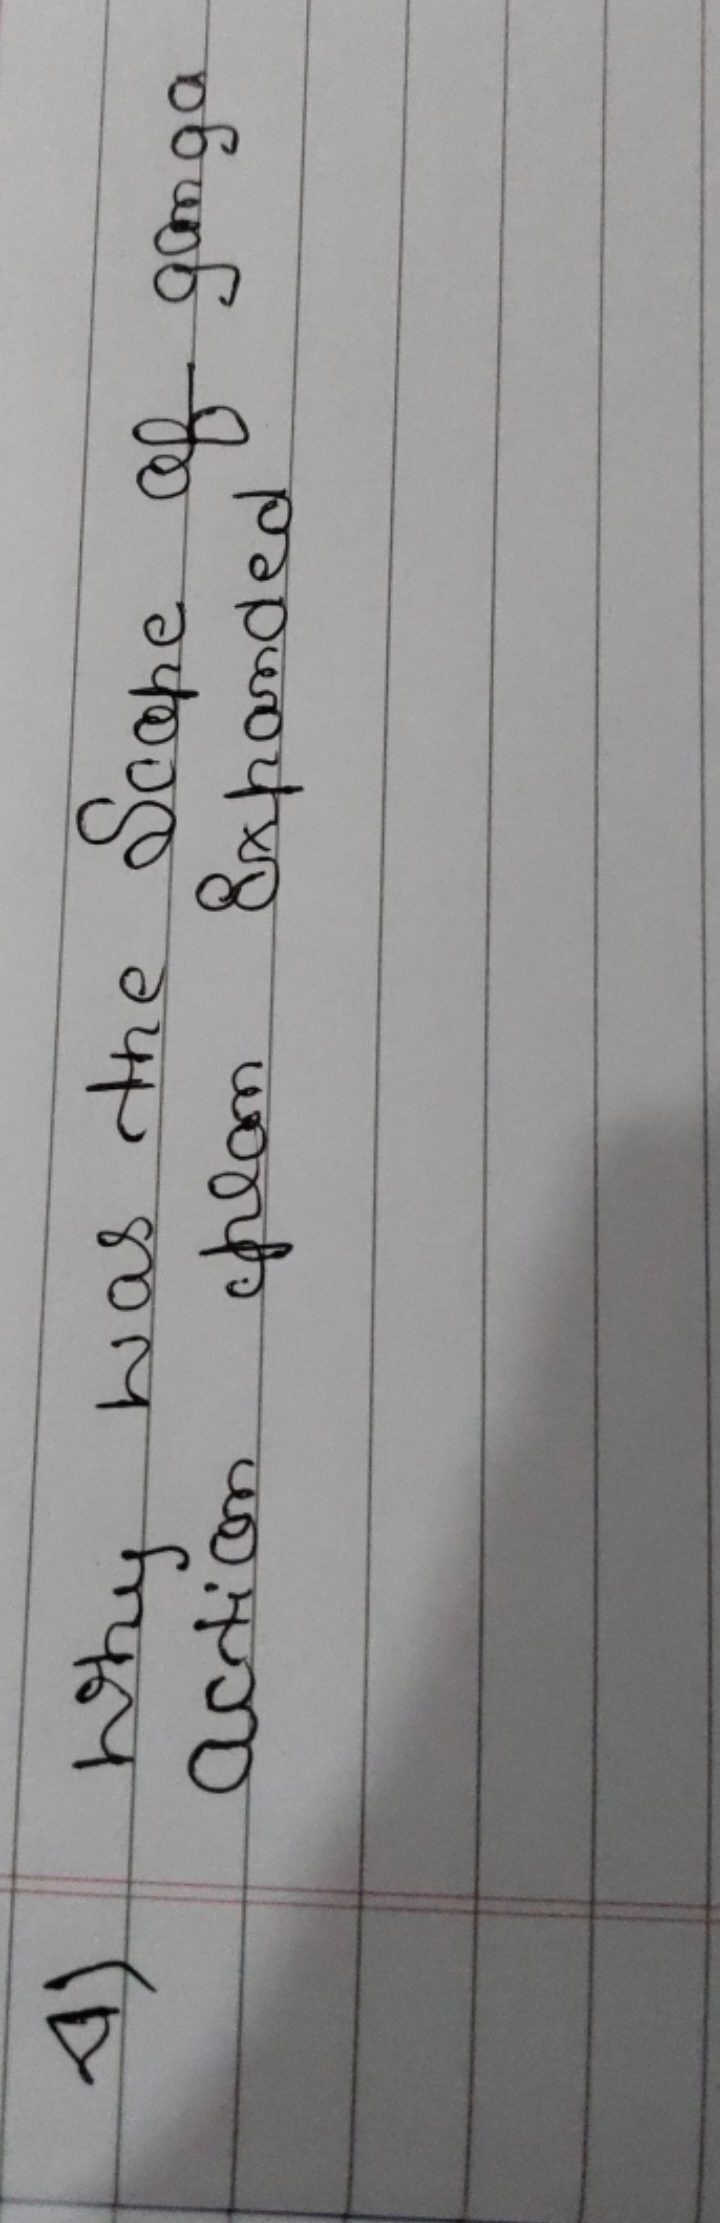 4) Why was the Scope of ganga
action plan Expanded